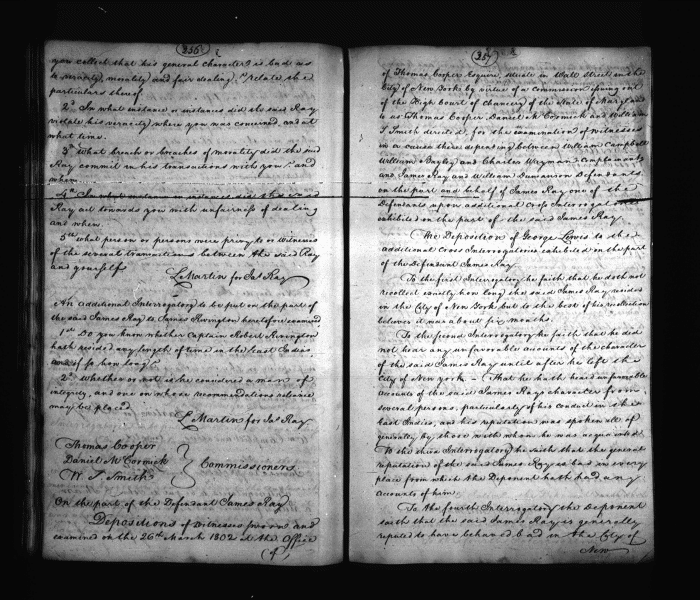 356
you collect that his general character is bad as
to veracity, morality and fair dealing, relate the
particulars thereof
2d In what instance or instances did the said Ray
violate his veracity where you was concerned and at
what time.
3d What breach or breaches of morality did the said
Ray commit in his transactions with you? and
when.
4th In what instance or instances did the said
Ray act towards you with unfairness of dealing
and when.
5th What person or persons were privy to or witnesses
of the several transactions between the said Ray
and yourself
L Martin for Jas Ray
An additional Interrogatory to be put on the part of
the said James Ray to James Rivington heretofore examined,
1st Do you know whether Captain Robert Rivington
hath resided any length of time in the East Indies
and if so how long?
2d Whether or not is he considered a man of
integrity, and one on whose recommendations reliance
may be placed
L Martin for Jas Ray
Thomas Cooper
Daniel McCormick } Commissioners
W. S. Smith
On the part of the Defendant James Ray
Depositions of witnesses sworn and
examined on the 26th March 1802 at the Office
(of)
357
of Thomas Cooper Esquire, situate in Wall Street in the
City of New York by virtue of a Commission issuing out
of the High Court of Chancery of the State of Maryland
to us Thomas Cooper Daniel McCormick and William
S Smith directed, for the examination of witnesses
in a cause there depending between William Campbell
William Bayley and Charles Wayman Complainants
and James Ray and William Dunawson Defendants
on the part and behalf of James Ray one of the
Defendants upon additional Cross Interrogatories
exhibited on the part of the said James Ray.
The Deposition of George Lewis to the
additional Cross Interrogatories exhibited on the part
of the Defendant James Ray
To the first Interrogatory he saith that he doth not
recollect exactly how long the said James Ray resided
in the City of New York but to the best of his recollection
believes it was about six months.
To the second Interrogatory he saith that he did
not hear any unfavorable accounts of the character
of the said James Ray until after he left the
City of New york — That he hath heard unfavorable
accounts of the said James Rays character from
several persons, particularly of his conduct in the
East Indies, and his reputation was spoken ill of
generally by those with whom he was acquainted
To the third Interrogatory he saith that the general
reputation of the said James Ray is bad in every
place from which the Deponent hath had any
accounts of him.
To the fourth Interrogatory the Deponent
saith that the said James Ray is generally
reputed to have behaved bad in the City of
New